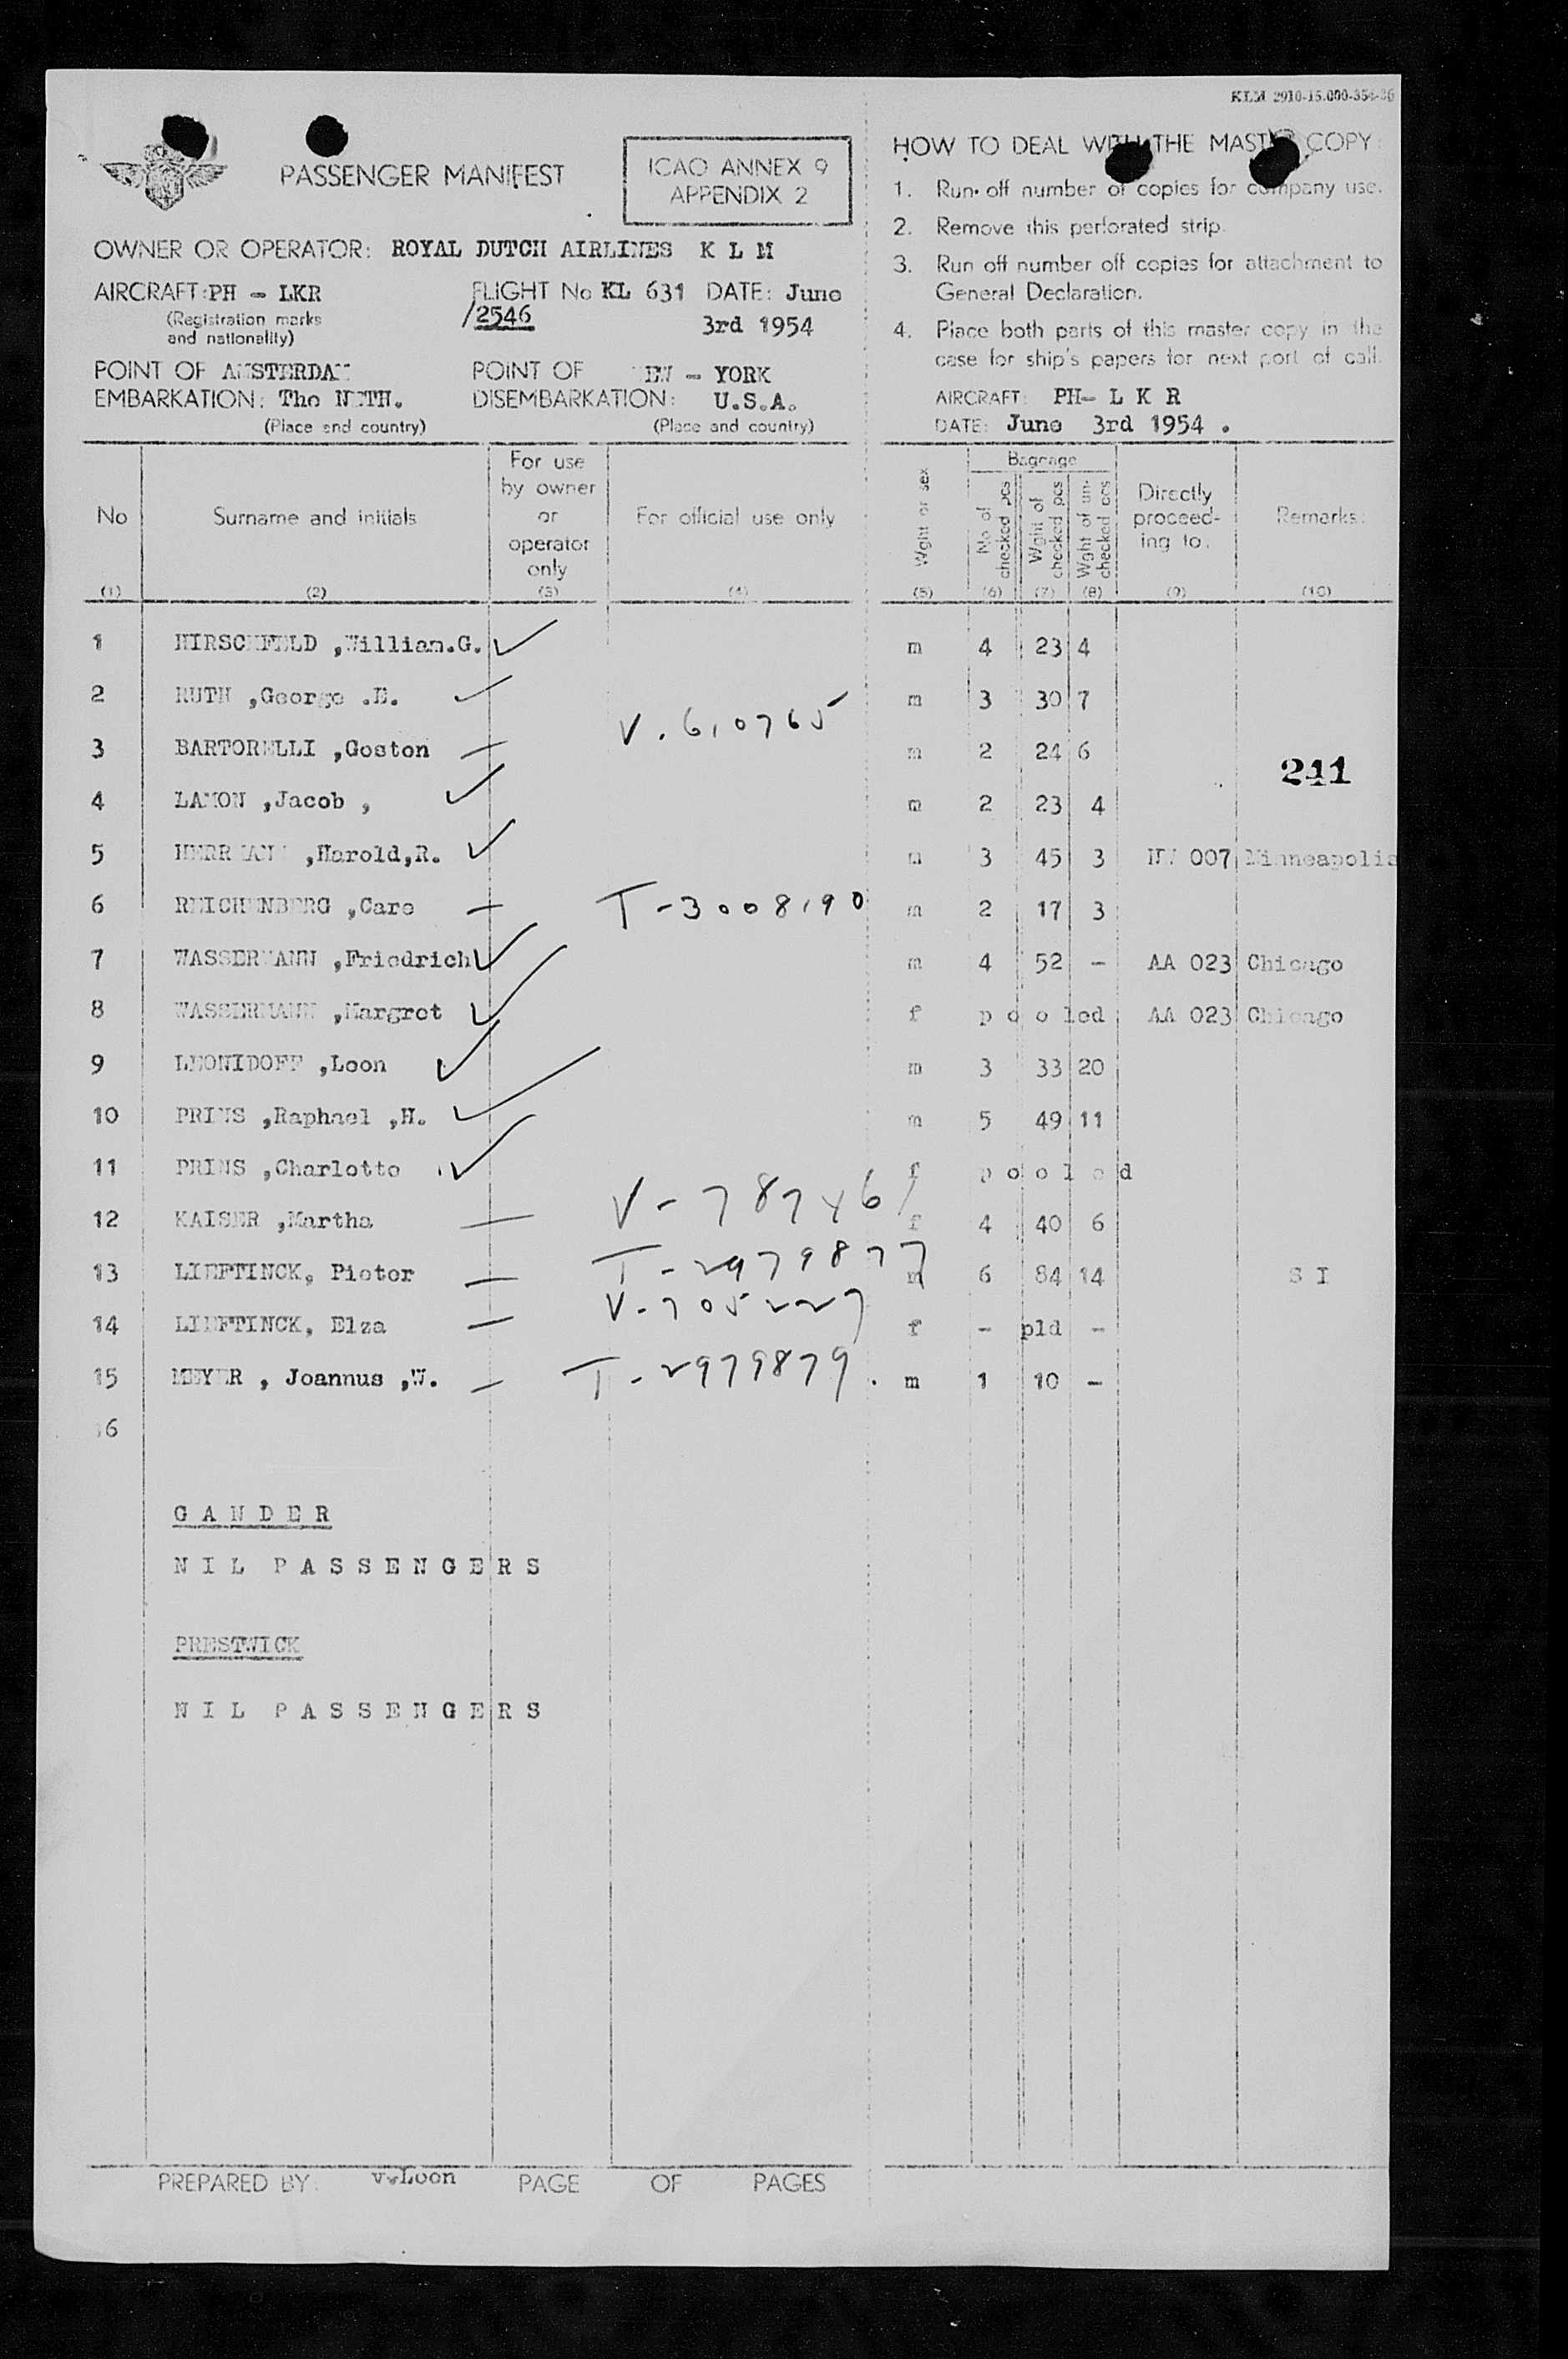 KLM 2910-15.000-354-36
PASSENGER MANIFEST
ICAO ANNEX 9
APPENDIX 2
OWNER OR OPERATOR: ROYAL DUTCH AIRLINES K L M
AIRCRAFT: PH - LKR FLIGHT No KL 631 DATE: June
(Registration marks /2546 3rd 1954
and nationality)
POINT OF AMSTERDAM POINT OF NEW - YORK
EMBARKATION: The NETH. DISEMBARKATION: U.S.A.
(Place and country) (Place and country)
HOW TO DEAL WITH THE MASTER COPY:
1. Run off number of copies for company use.
2. Remove this perforated strip.
3. Run off number off copies for attachment to
General Declaration.
4. Place both parts of this master copy in the
case for ship's papers for next port of call.
AIRCRAFT: PH- L K R
DATE: June 3rd 1954 .
No Surname and initials For use by owner or operator only For official use only Wght or sex Baggage No of checked pcs Wght of checked pcs Wght of un-checked pcs Directly proceed-ing to. Remarks:
(1) (2) (3) (4) (5) (6) (7) (8) (9) (10)
1 HIRSCHFELD ,William.G. m 4 23 4
2 RUTH ,George .E. m 3 30 7
V. 610765
3 BARTORELLI ,Goston m 2 24 6
241
4 LAMON ,Jacob , m 2 23 4
5 HERRMANN ,Harold,R. m 3 45 3 NW 007 Minneapolis
6 REICHENBERG ,Care T-3008190 m 2 17 3
7 WASSERMANN ,Friedrich m 4 52 - AA 023 Chicago
8 WASSERMANN ,Margret f p o o led AA 023 Chicago
9 LEONIDOFF ,Leon m 3 33 20
10 PRINS ,Raphael ,H. m 5 49 11
11 PRINS ,Charlotte f p o o l e d
12 KAISER ,Martha V-787461 f 4 40 6
13 LIEFTINCK, Pieter T-2979877 m 6 84 14 S I
14 LIEFTINCK, Elza V-705227 f - pld -
15 MEYER , Joannus ,W. T-2979879. m 1 10 -
16
G A N D E R
N I L P A S S E N G E R S
PRESTWICK
N I L P A S S E N G E R S
PREPARED BY: v.Loon PAGE OF PAGES